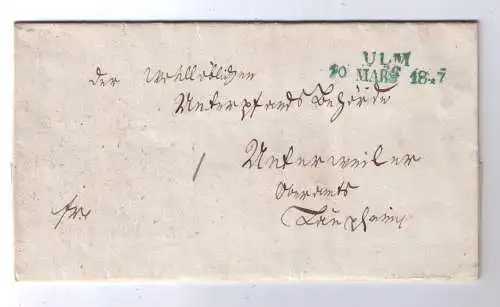 ULM
10 MÄRZ 18 7
der wohllöblichen
Unterpfands Behörde
Unterweiler
Oberamts
Laupheim
fr.